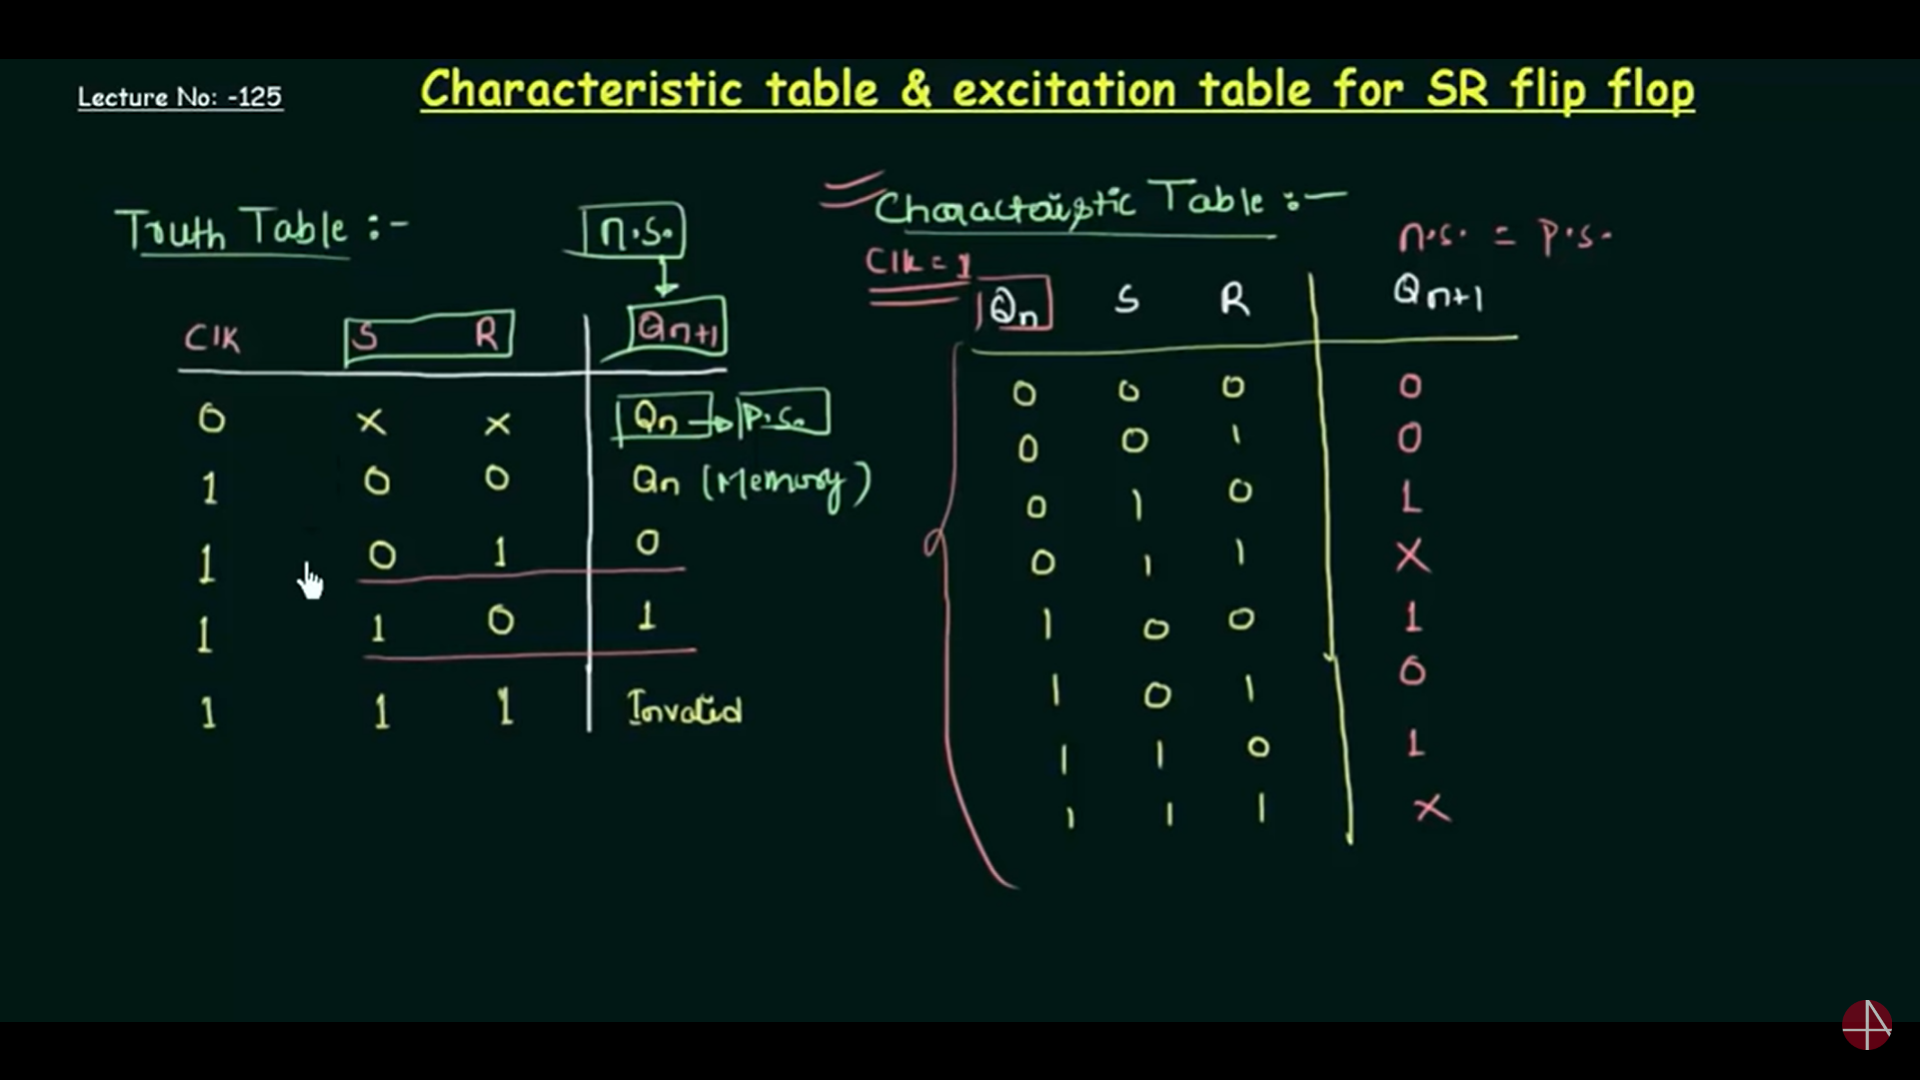 Lecture No: -125
Characteristic table & excitation table for SR flip flop
Truth Table :-
n.s.
Clk S R Qn+1
0 x x Qn → P.S.
1 0 0 Qn (Memory)
1 0 1 0
1 1 0 1
1 1 1 Invalid
Charactristic Table :-
n.s. = P.s.
Clk = 1
Qn S R Qn+1
0 0 0 0
0 0 1 0
0 1 0 1
0 1 1 X
1 0 0 1
1 0 1 0
1 1 0 1
1 1 1 X